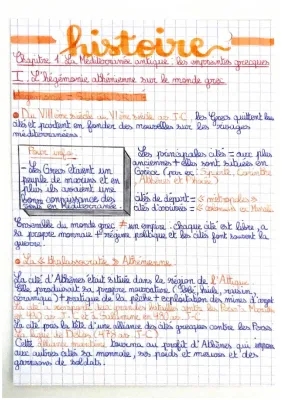 histoire
Chapitre 1 La Méditerranée antique : les empreintes grecques
I. L'hégémonie athénienne sur le monde grec
Hégémonie = SUPÉRIORITÉ
Du VIIIème siècle au VIème siècle av J-C, les Grecs quittent les
cités et partent en fonder des nouvelles sur les rivages
méditerranéens.
Pour info :
- Les Grecs étaient un
peuple de marins et en
plus ils avaient une
bonne connaissance des
vents en Méditerranée.
Les principales cités = aux plus
anciennes + elles sont situées en
Grèce (par ex : Sparte, Corinthe
Athènes et Phocée)
cités de départ = métropoles
cités d'arrivées =
Ensemble du monde grec ≠ un empire. chaque cité est libre, a
sa propre monnaie + régime politique et les cités font souvent la
guerre.
La thalassocratie d'Athènes
La cité d'Athènes était située dans la région de l'Attique.
Elle produisait sa propre nourriture (blé, huile, raisin,
céramique) + pratique de la pêche + exploitation des mines d'argent
La cité a remporté des grandes batailles contre les Perses : Marathon
en 490 av J-C et à Salamine en 480 av J-C
La cité prend la tête d'une alliance des cités grecques contre les Perses
La ligue de Délos (478 av J-C)
Cette alliance maritime tourna au profit d'Athènes qui impose
aux autres cités sa monnaie, ses poids et mesures et des
garnisons de soldats.